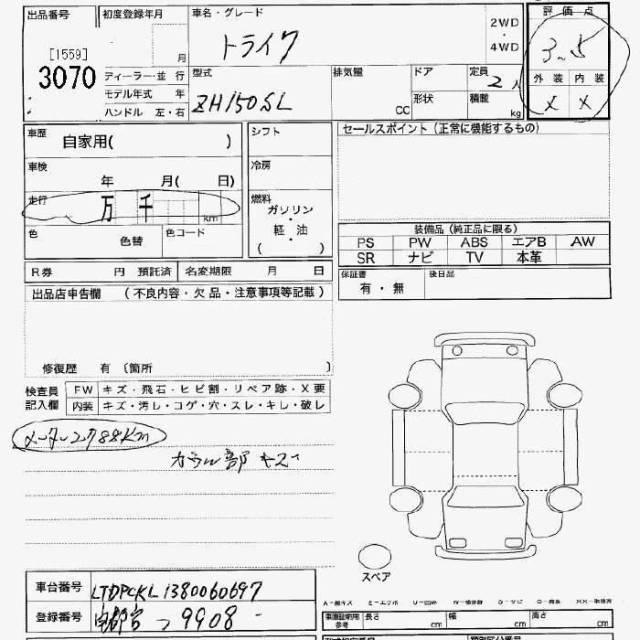 出品番号 初度登録年月 車名・グレード 2WD ・ 4WD 評価点
[1559] 月 トライク 3~5
3070 ディーラー・並 行 型式 排気量 ドア 定員 2人 外装 内装
モデル年式 年 ZH150SL CC 形状 積載 kg x x
ハンドル 左・右
車歴 自家用( ) シフト セールスポイント (正常に機能するもの)
車検 年 月( 日) 冷房
走行 万 千 km 燃料 ガソリン ・ 軽油 ( )
色 色替 色コード 装備品 (純正品に限る)
PS PW ABS エアB AW
SR ナビ TV 本革
R券 円 預託済 名変期限 月 日 保証書 有・無 後日品
出品店申告欄 (不良内容・欠品・注意事項等記載)
修復歴 有 (箇所 )
検査員記入欄 FW キズ・飛石・ヒビ割・リペア跡・X要
内装 キズ・汚し・コゲ・穴・スレ・キレ・破レ
メーター2788Km
カウル部 キズ
スペア
車台番号 LTDPCKL1380060697
登録番号 つ9908
長さ cm 幅 cm 高さ cm